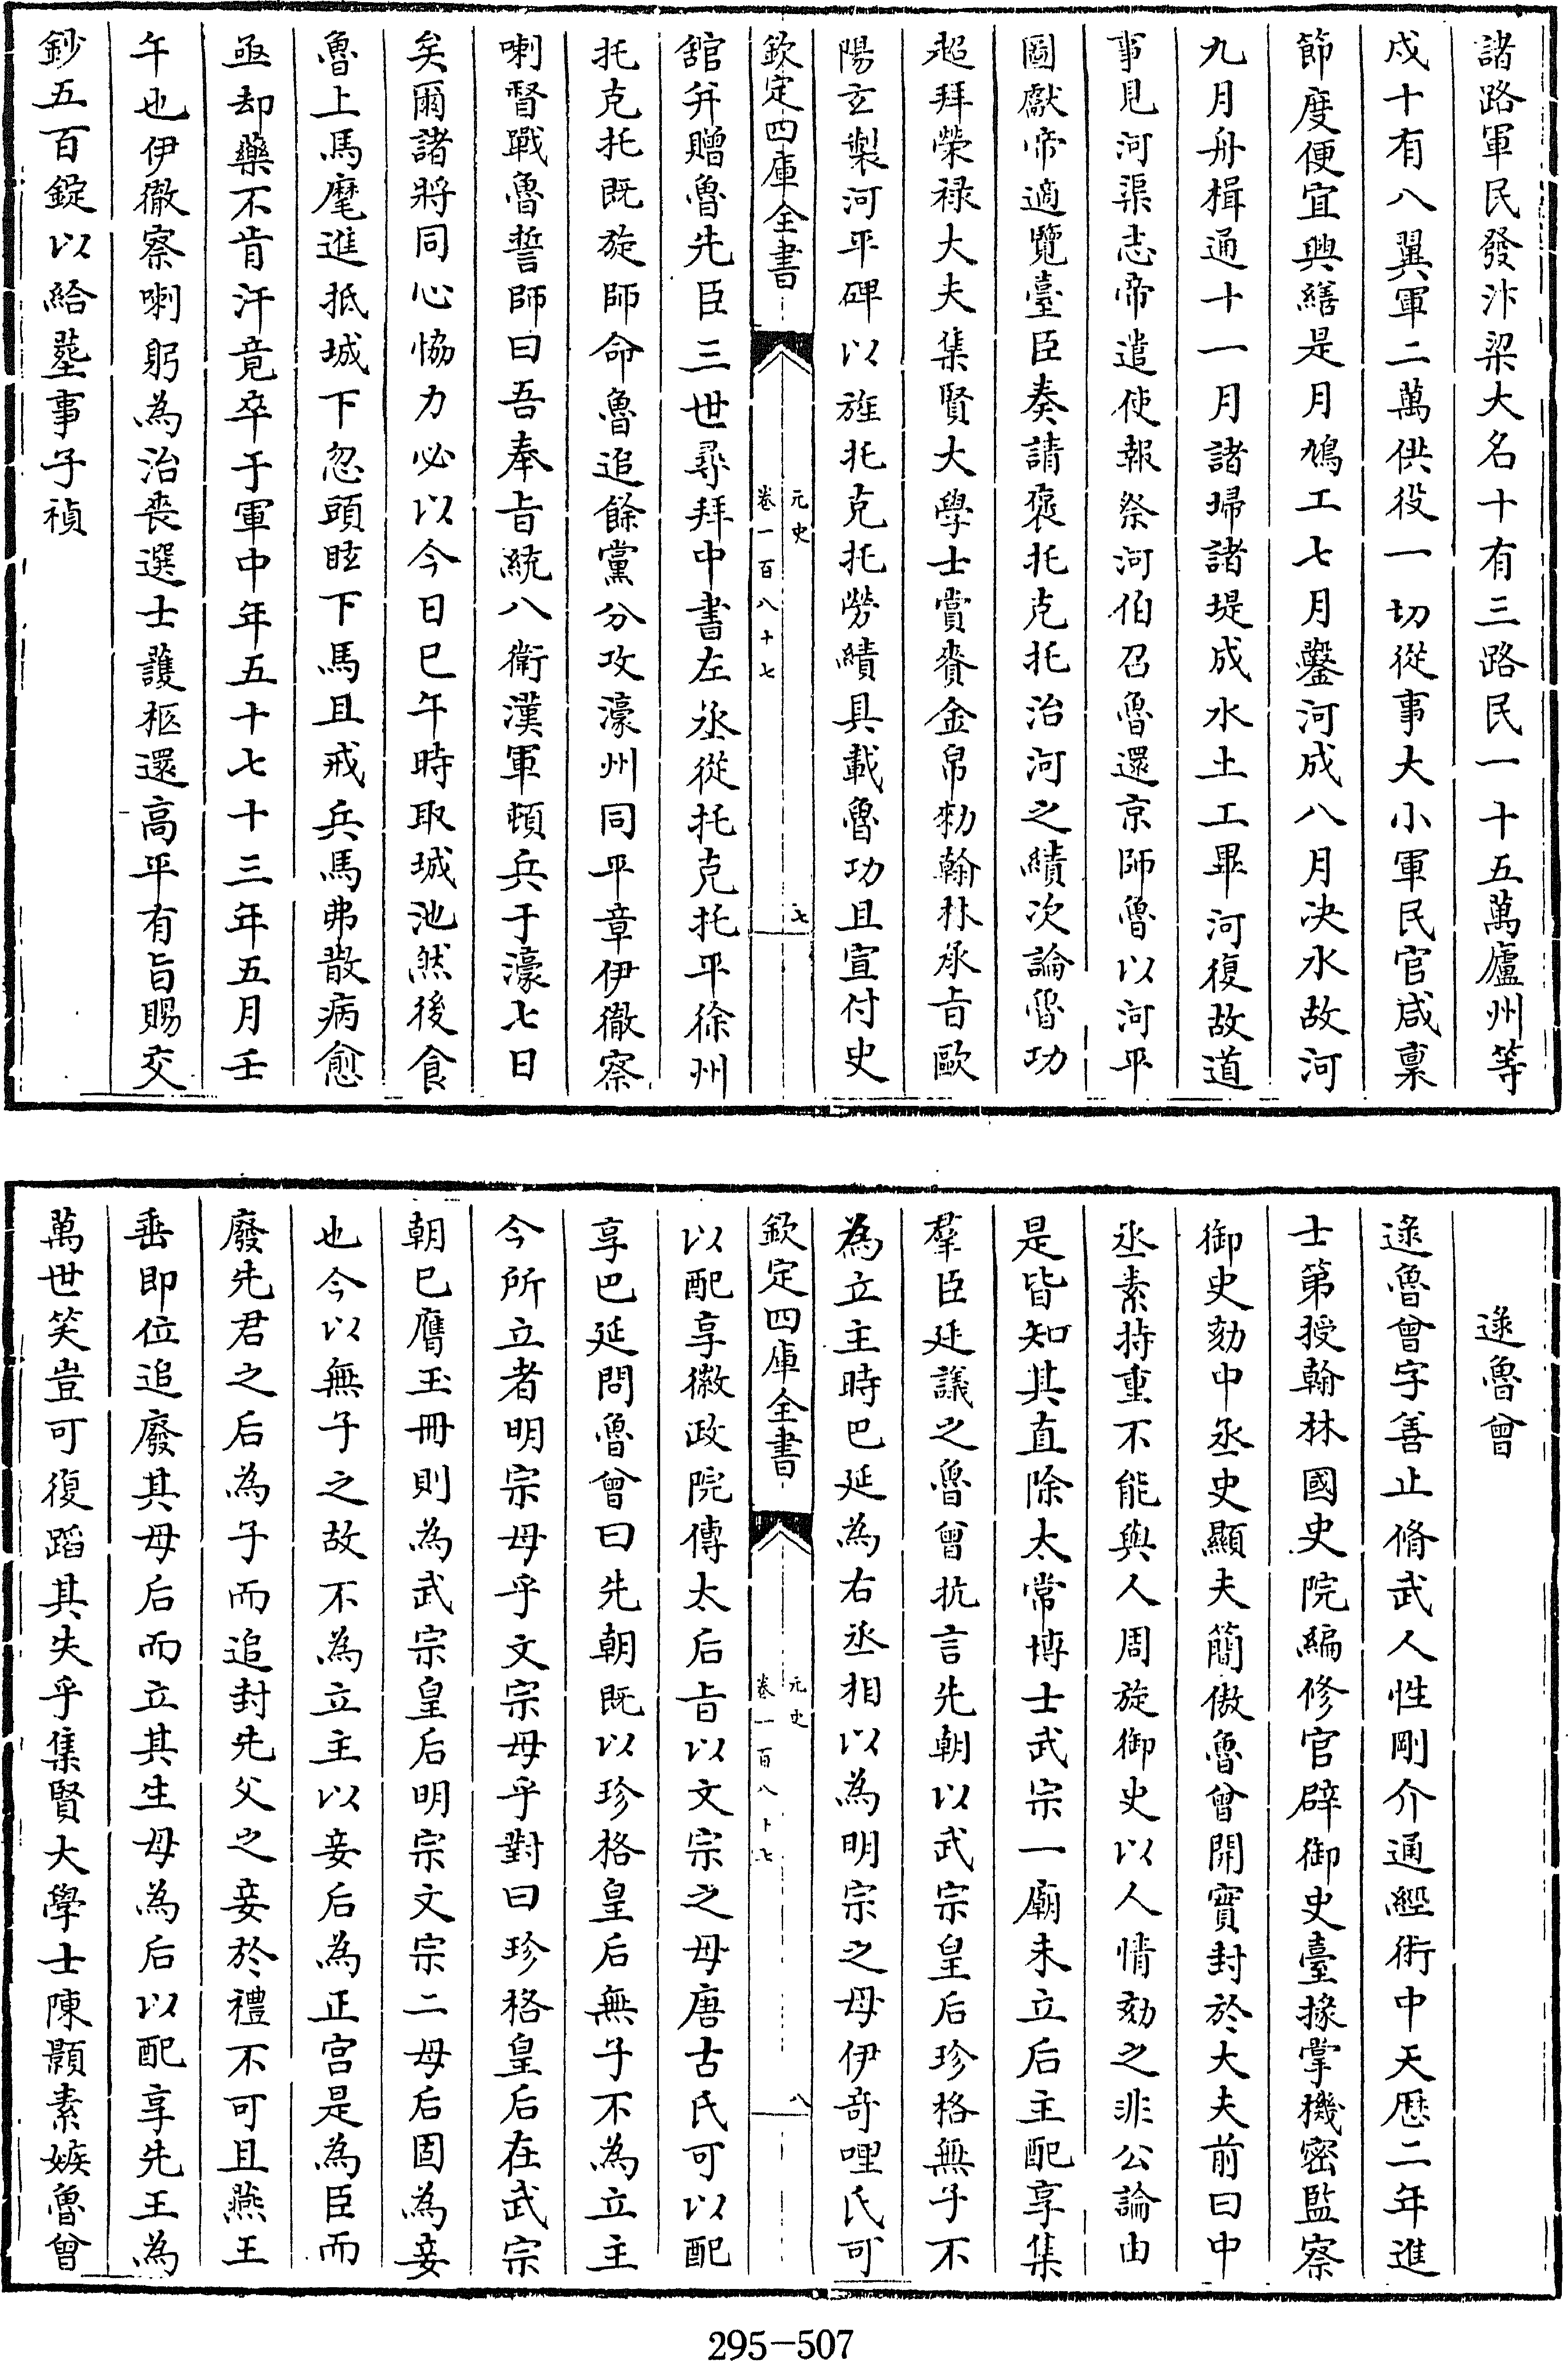 諸路軍民發汴梁大名十有三路民一十五萬廬州等
戍十有八翼軍二萬供役一切從事大小軍民官咸稟
節度便宜興繕是月鳩工七月鑿河成八月決水故河
九月舟楫通十一月諸埽諸堤成水土工畢河復故道
事見河渠志帝遣使報祭河伯召魯還京師魯以河平
圖獻帝適覽臺臣奏請褒托克托治河之績次論魯功
超拜榮禄大夫集賢大學士賞賚金帛勑翰林承旨歐
陽玄製河平碑以旌托克托勞績具載魯功且宣付史
欽定四庫全書
元史
卷一百八十七
七
舘并贈魯先臣三世尋拜中書左丞從托克托平徐州
托克托既旋師命魯追餘黨分攻濠州同平章伊徹察
喇督戰魯誓師曰吾奉旨統八衛漢軍頓兵于濠七日
矣爾諸將同心協力必以今日巳午時取城池然後食
魯上馬麾進抵城下忽頭眩下馬且戒兵馬弗散病愈
亟却藥不肯汗竟卒于軍中年五十七十三年五月壬
午也伊徹察喇躬為治喪選士護柩還高平有旨賜交
鈔五百錠以給塟事子禎
逯魯曾
逯魯曾字善止脩武人性剛介通經術中天厯二年進
士第授翰林國史院編修官辟御史臺掾掌機密監察
御史劾中丞史顯夫簡傲魯曾開實封於大夫前曰中
丞素持重不能與人周旋御史以人情劾之非公論由
是皆知其直除太常博士武宗一廟未立后主配享集
羣臣廷議之魯曾抗言先朝以武宗皇后珍格無子不
為立主時巴延為右丞相以為明宗之母伊奇哩氏可
欽定四庫全書
元史
卷一百八十七
八
以配享徽政院傳太后旨以文宗之母唐古氏可以配
享巴延問魯曾曰先朝既以珍格皇后無子不為立主
今所立者明宗母乎文宗母乎對曰珍格皇后在武宗
朝已膺玉冊則為武宗皇后明宗文宗二母后固為妾
也今以無子之故不為立主以妾后為正宫是為臣而
廢先君之后為子而追封先父之妾於禮不可且燕王
垂即位追廢其母后而立其生母為后以配享先王為
萬世笑豈可復蹈其失乎集賢大學士陳顥素嫉魯曾
295-507